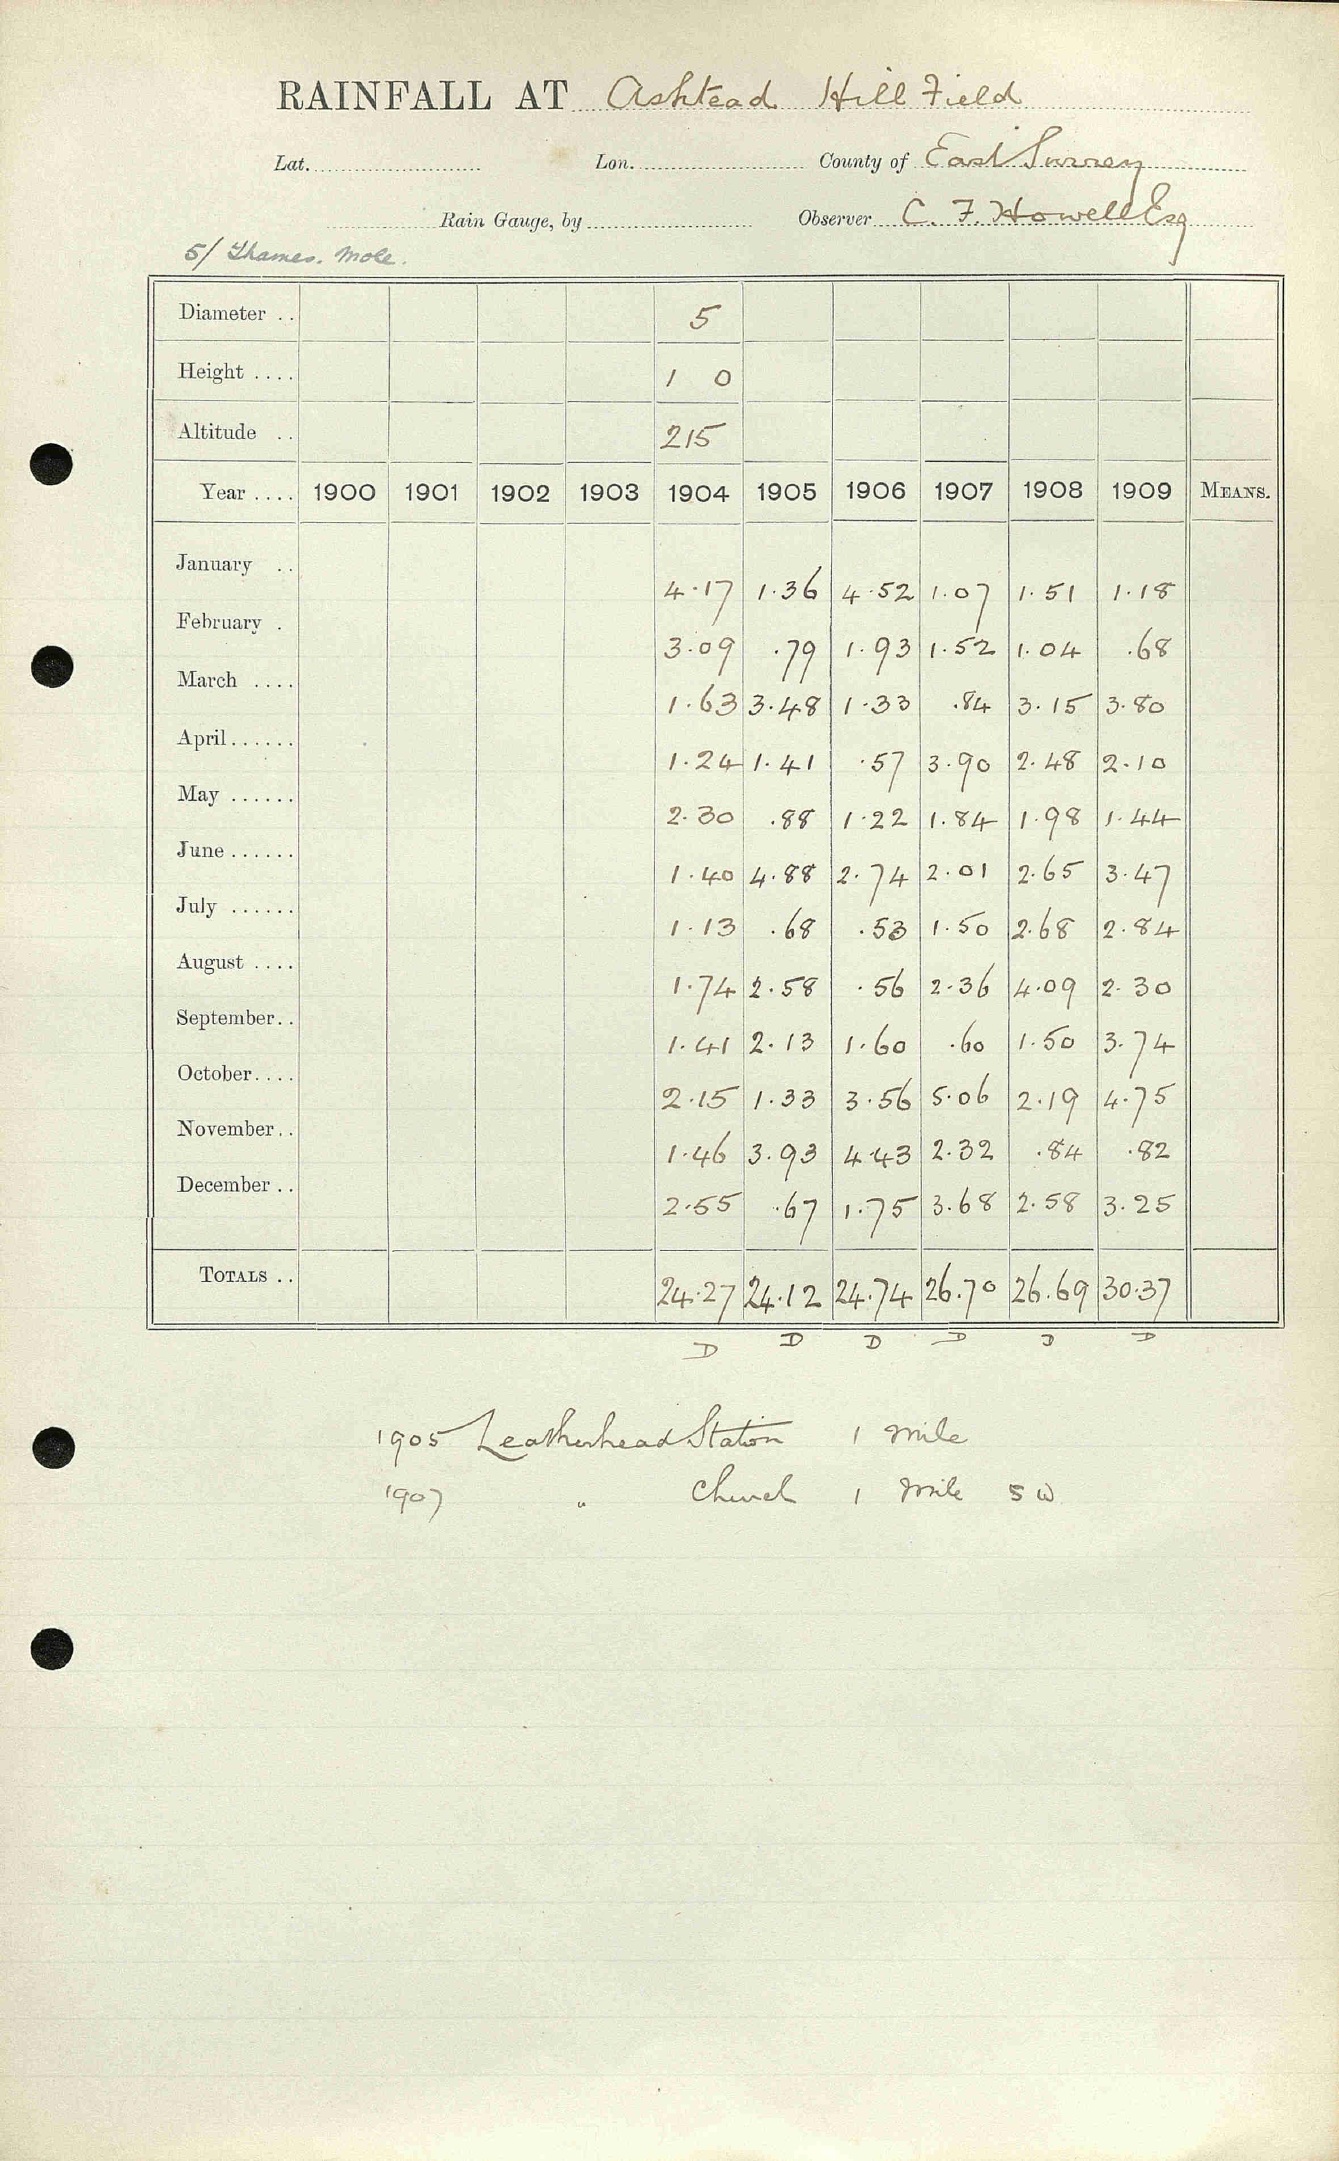 RAINFALL AT Ashtead Hill Field
Lat. Lon. County of East Surrey
Rain Gauge, by Observer C. F. Howell Esq
5/ Thames. Mole.
Diameter .. 5
Height .... 1 0
Altitude .. 215
Year .... 1900 1901 1902 1903 1904 1905 1906 1907 1908 1909 MEANS.
January .. 4.17 1.36 4.52 1.07 1.51 1.18
February . 3.09 .79 1.93 1.52 1.04 .68
March .... 1.63 3.48 1.33 .84 3.15 3.80
April...... 1.24 1.41 .57 3.90 2.48 2.10
May ...... 2.30 .88 1.22 1.84 1.98 1.44
June ...... 1.40 4.88 2.74 2.01 2.65 3.47
July ...... 1.13 .68 .53 1.50 2.68 2.84
August .... 1.74 2.58 .56 2.36 4.09 2.30
September.. 1.41 2.13 1.60 .60 1.50 3.74
October.... 2.15 1.33 3.56 5.06 2.19 4.75
November.. 1.46 3.93 4.43 2.32 .84 .82
December .. 2.55 .67 1.75 3.68 2.58 3.25
TOTALS .. 24.27 24.12 24.74 26.70 26.69 30.37
D D D D D D
1905 Leatherhead Station 1 Mile
1907 " Church 1 Mile SW